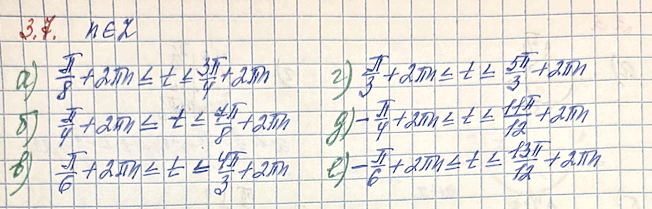 3.7. n∈Z
а) π/8 + 2πn ≤ t ≤ 3π/4 + 2πn
б) π/4 + 2πn ≤ t ≤ 7π/8 + 2πn
в) π/6 + 2πn ≤ t ≤ 4π/3 + 2πn
г) π/3 + 2πn ≤ t ≤ 5π/3 + 2πn
д) -π/4 + 2πn ≤ t ≤ 11π/12 + 2πn
е) -π/6 + 2πn ≤ t ≤ 13π/12 + 2πn